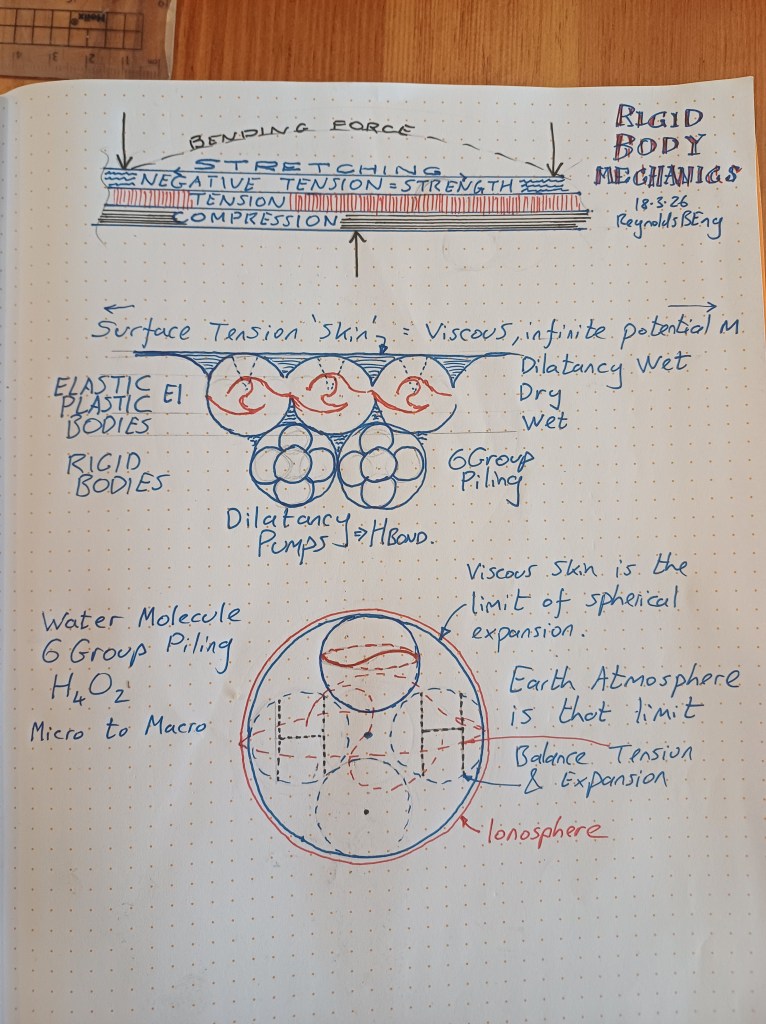 Helix
5 4 3 2 1
BENDING FORCE
STRETCHING
NEGATIVE TENSION = STRENGTH
TENSION
COMPRESSION
RIGID
BODY
MECHANICS
18·3·26
Reynolds BEng
Surface Tension 'Skin' = Viscous, infinite potential M
ELASTIC
PLASTIC EI
BODIES
Dilatancy Wet
Dry
Wet
RIGID
BODIES
6 Group
Piling
Dilatancy
Pumps ⇒ HBOND.
Viscous Skin is the
limit of spherical
expansion.
Water Molecule
6 Group Piling
H₄O₂
Micro to Macro
Earth Atmosphere
is that limit
Balance Tension
& Expansion
Ionosphere
H H